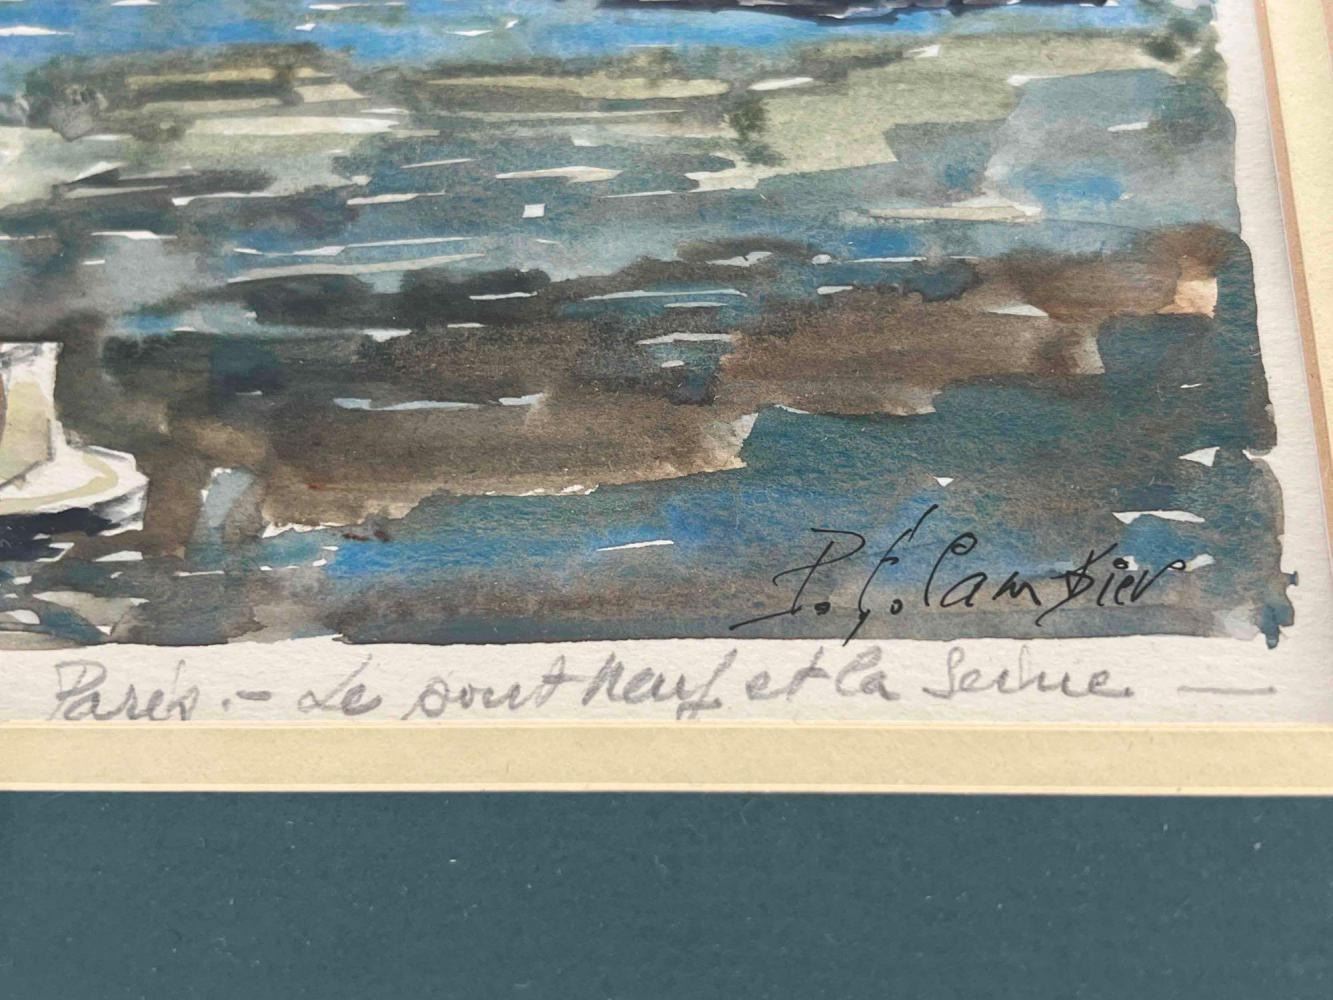 P. G. Cambier
Paris. - Le pont Neuf et la Seine. —